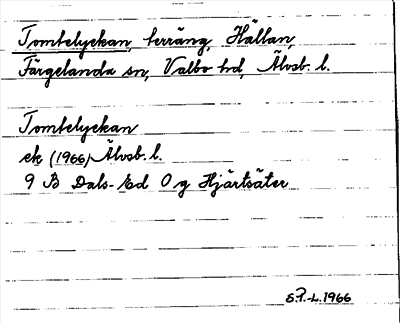 Tomtelyckan, terräng, Hällan,
Färgelanda sn, Valbo hd, Älvsb. l.
Tomtelyckan
ek (1966) Älvsb. l.
9 B Dals-Ed 0 g Hjärtsäter
S.P.-L. 1966